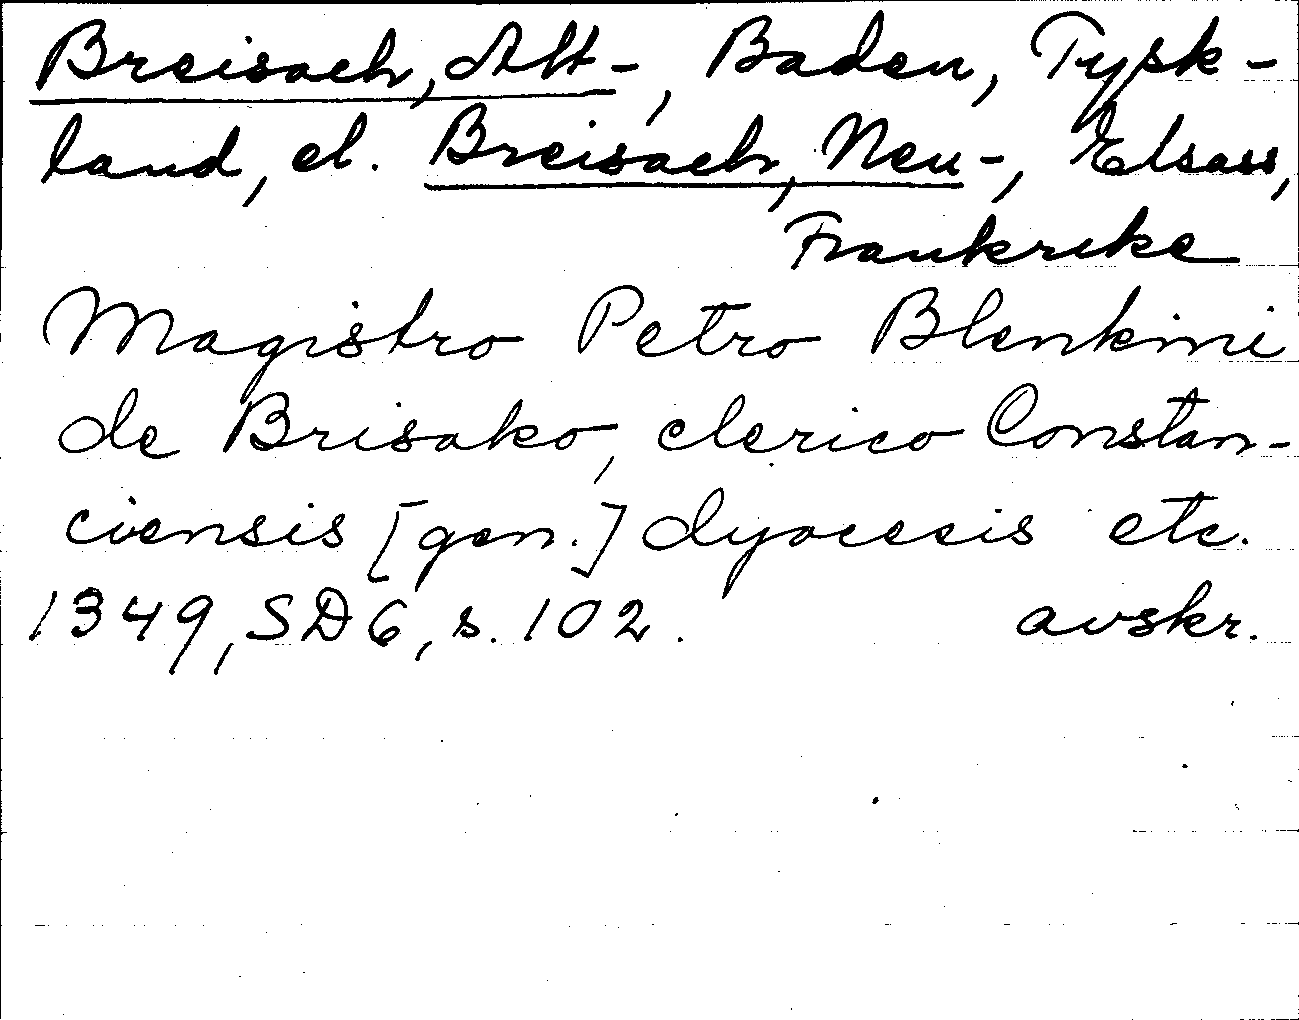 Breisach, Alt-, Baden, Tysk-
land, el. Breisach, Neu-, Elsass,
Frankrike
Magistro Petro Blenkini
de Brisako, clerico Constan-
ciensis [gen.] dyocesis etc.
1349, SD 6, s. 102. avskr.